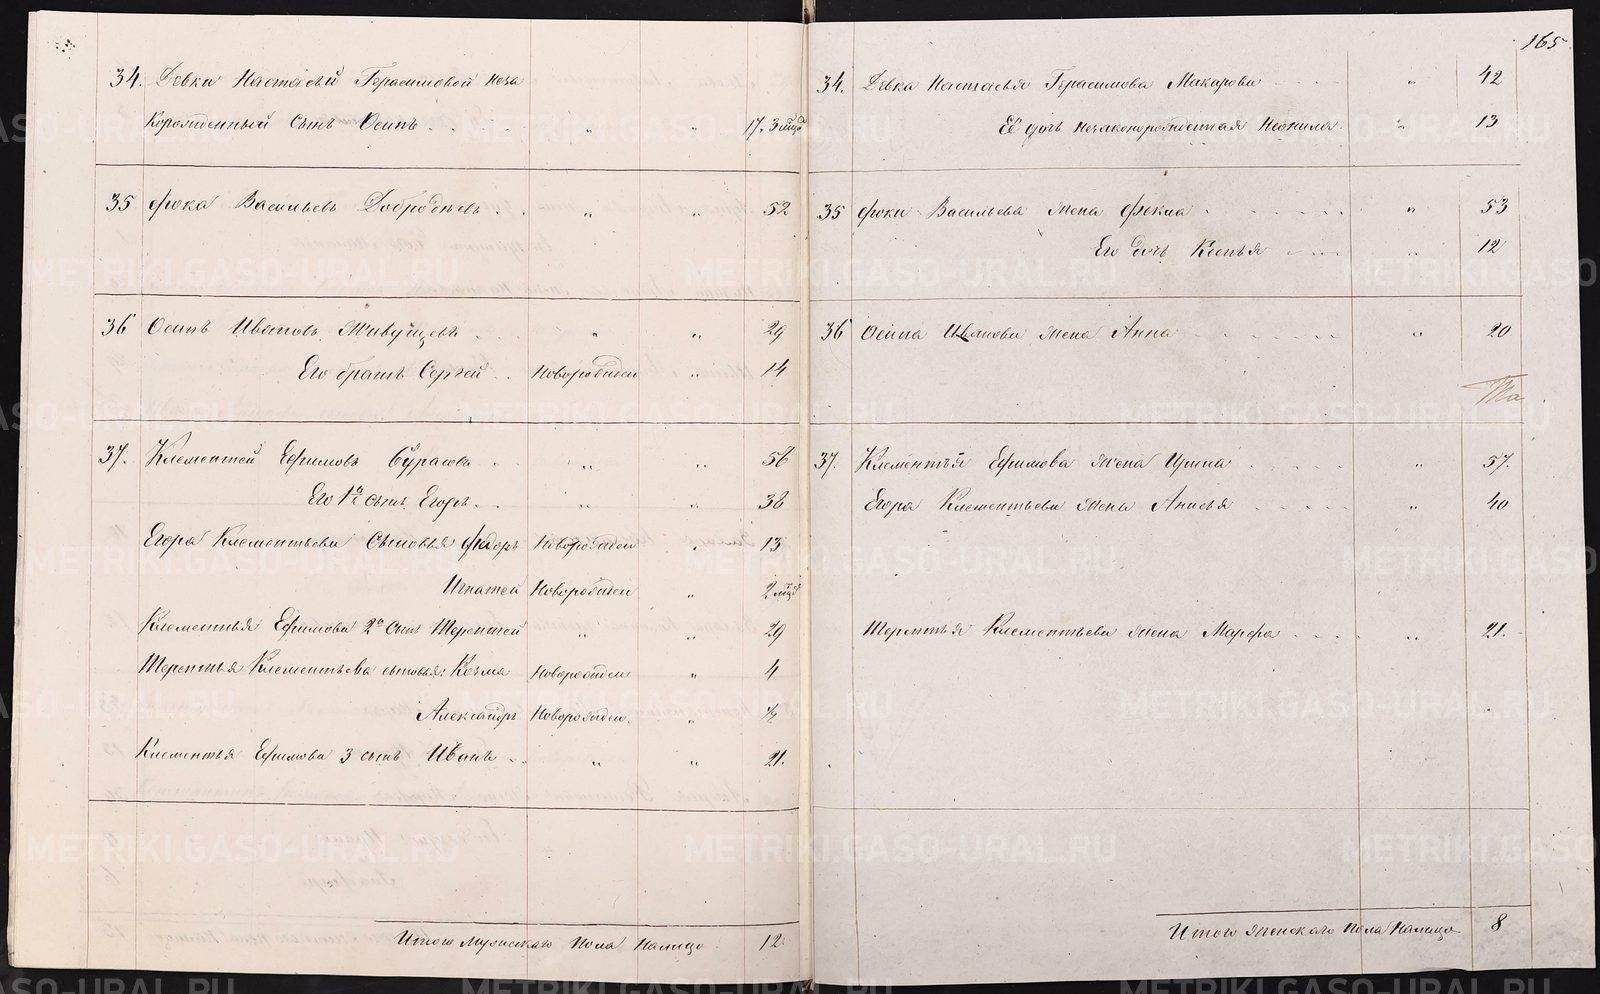 34. Девки Настасьи Герасимовой неза
корожденный сынъ Осипъ . . . " " 17. 3 мцд
35 Фока Васильевъ Добродеевъ . . " " 52
36 Осипъ Ивановъ Живущевъ . . . " " 29
Его братъ Сергей . . Новорожден " 14
37. Клементей Ефимовъ Бурасовъ . . " " 56
Его 1й сынъ Егоръ . . . " " 38
Егора Клементьева сыновья Федоръ Новорожден " 13
Игнатей Новорожден " 2 мцд
Клементья Ефимова 2й сынъ Терентей " " 29
Терентья Клементьева сыновья: Козма Новорожден " 4
Александръ Новорожден. " ½
Клементья Ефимова 3 сынъ Иванъ . . " " 21.
Итого мужескаго пола налицо 12.
165
34. Девка Настасья Герасимова Макарова " 42
Её дочь незаконорожденная Неонила " 13
35 Фоки Васильева жена Фекла " 53
Его дочь Ксенья " 12
36 Осипа Иванова жена Анна " 20
37. Клементья Ефимова жена Ирина " 57.
Егора Клементьева жена Анисья " 40
Терентья Клементьева жена Марфа " 21.
Итого женскаго пола налицо 8
METRIKI.GASO-URAL.RU